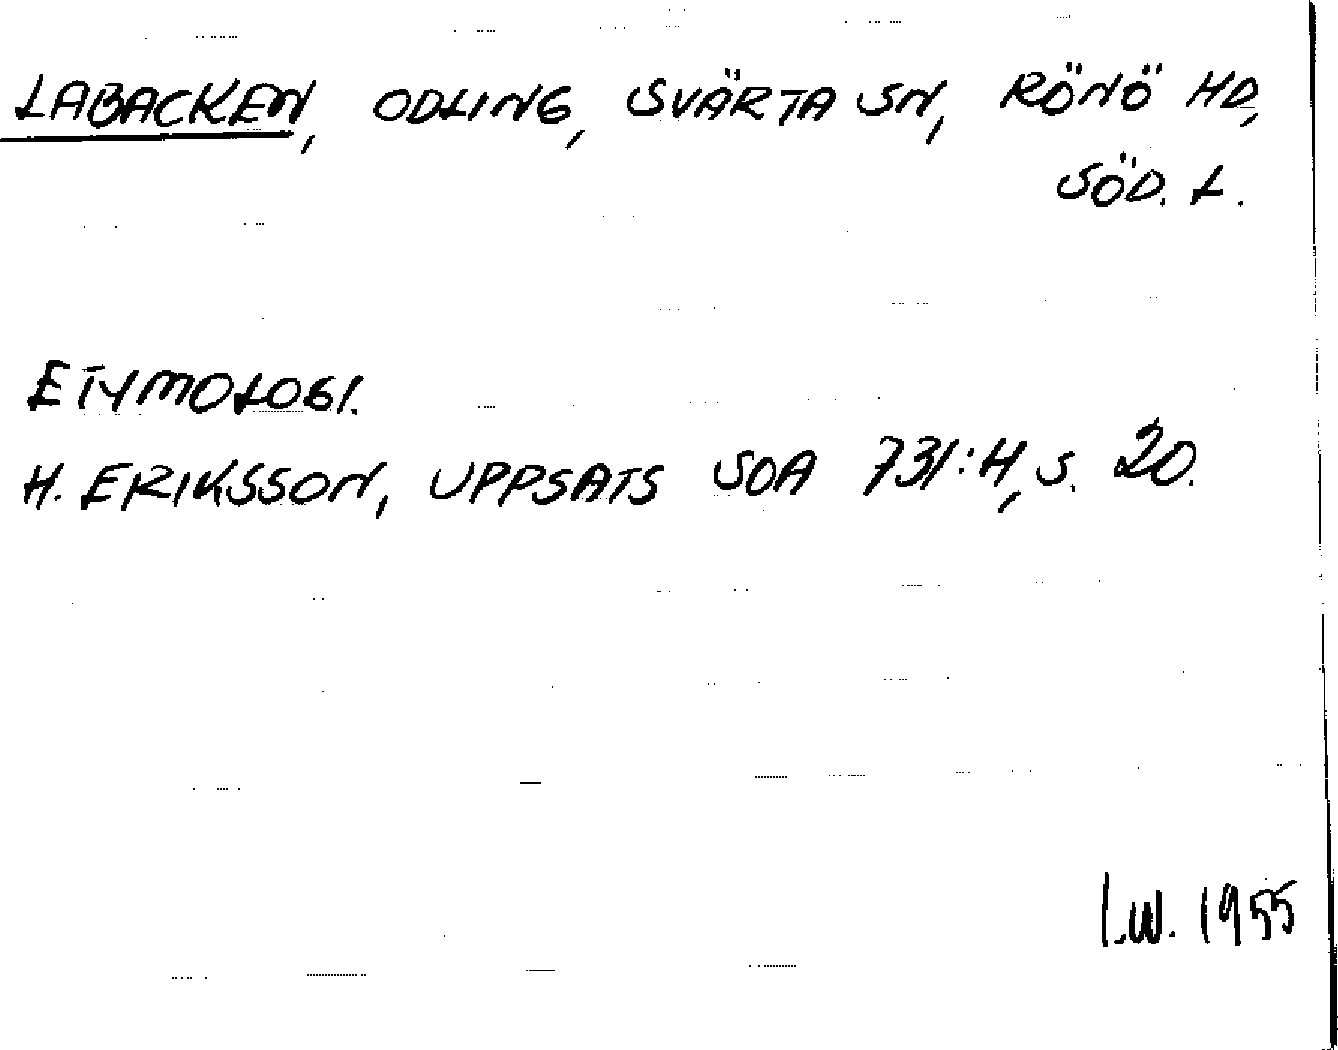 LABACKEN, ODLING, SVÄRTA SN, RÖNÖ HD,
SÖD. L.
ETYMOLOGI.
H. ERIKSSON, UPPSATS SOA 731:H, S. 20.
I.W. 1955